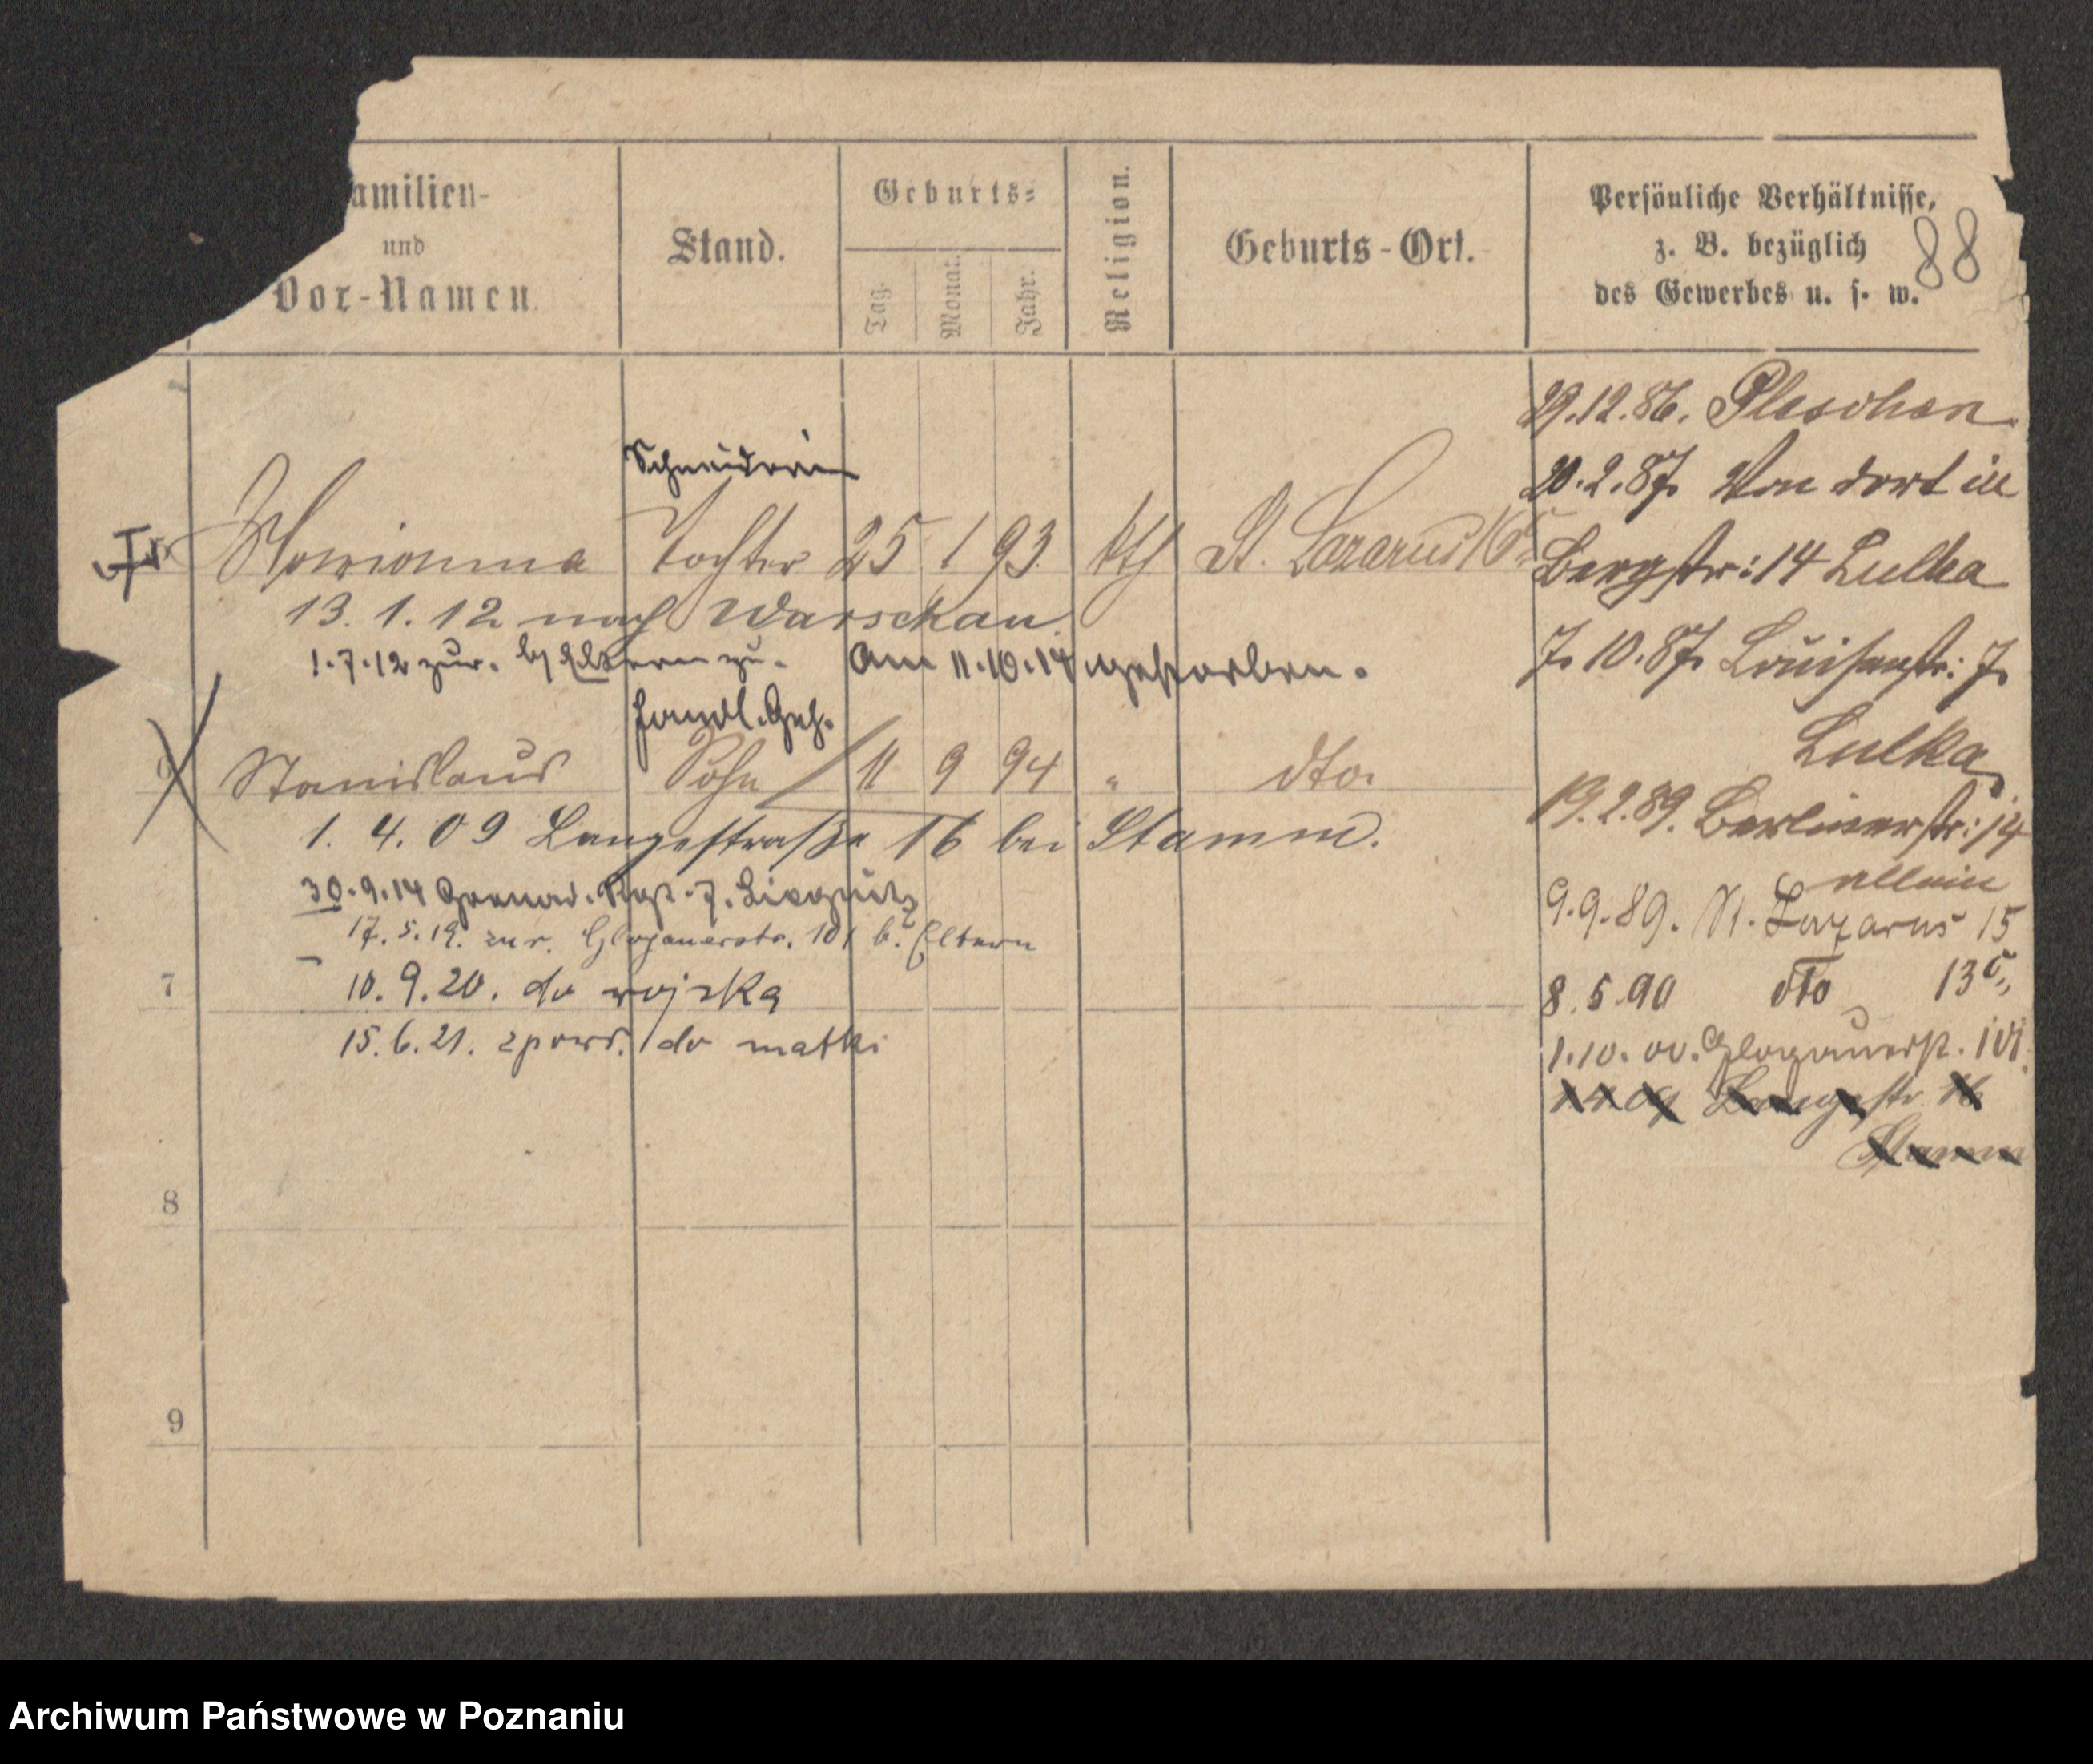 amilien-
und
Vor-Namen.
Stand.
Geburts-
Tag.
Monat.
Jahr.
Religion.
Geburts-Ort.
Persönliche Verhältnisse,
z. B. bezüglich
des Gewerbes u. s. w.
88
Schneiderin
Marianna Tochter 25 1 93. kth St. Lazarus 16
13. 1. 12 nach Warschau.
1.7.12 zur. b/ Eltern zu. Am 11.10.14 gestorben.
Handl. Geh.
Stanislaus Sohn 11 9 94 " dto.
1. 4. 09 Langestraße 16 bei Stamm.
30.9.14 Grenad. Regt. 7. Liegnitz
17.5.19. zur. Glogauerstr. 101 b. Eltern
7
10.9.20. do wojska
15.6.21. zpowr. do matki
8
9
29.12.86. Pleschen
20.2.87. Von dort in
Bergstr: 14 Lulka
7.10.87. Louisenstr: 7.
Lulka
19.2.89. Berlinerstr: 14
allein
9.9.89. St. Lazarus 15
8.5.90 dto 13
1.10.00. Glogauerst. 101.
1.4.09 Langestr 16
Stamm
Archiwum Państwowe w Poznaniu